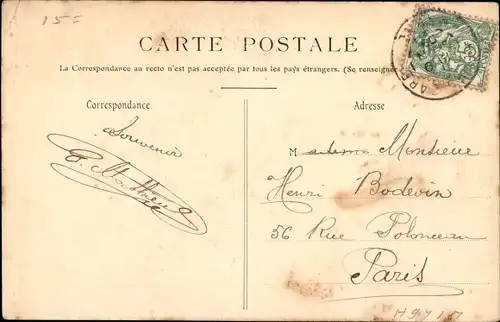 15=
CARTE POSTALE
La Correspondance au recto n'est pas acceptée par tous les pays étrangers. (Se renseigner
Correspondance
Souvenir
Adresse
M adame Monsieur
Henri Bodevin
56 Rue Polonceau
Paris